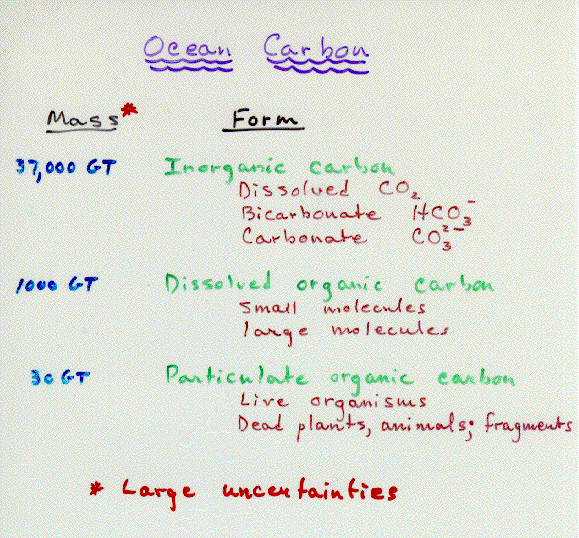 Ocean Carbon
Mass* Form
37,000 GT Inorganic carbon
Dissolved CO₂
Bicarbonate HCO₃⁻
Carbonate CO₃²⁻
1000 GT Dissolved organic carbon
Small molecules
large molecules
30 GT Particulate organic carbon
Live organisms
Dead plants, animals; fragments
* Large uncertainties